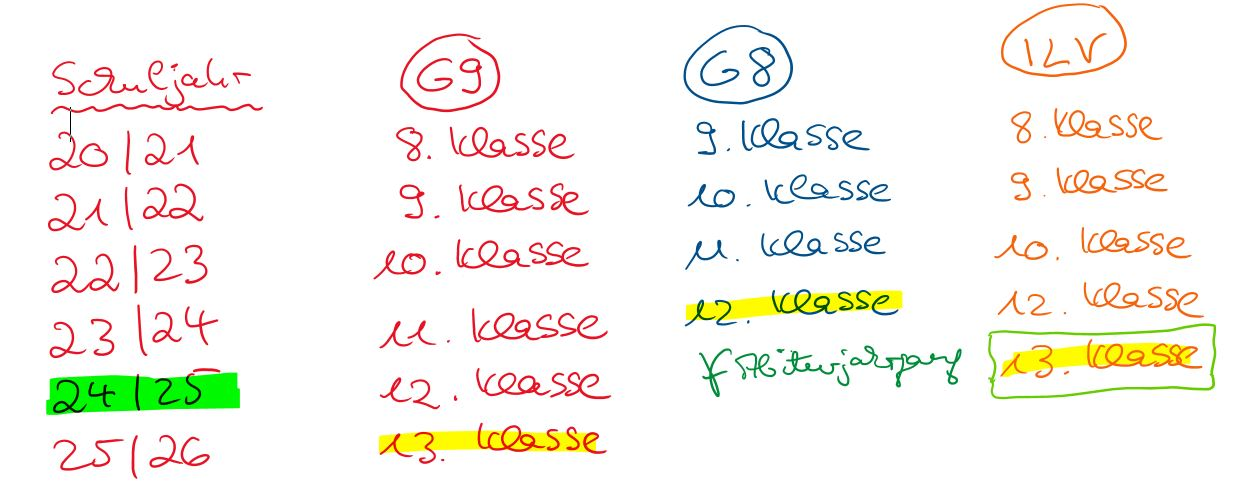 Schuljahr G9 G8 ILV
20/21 8. Klasse 9. Klasse 8. Klasse
21/22 9. Klasse 10. Klasse 9. Klasse
22/23 10. Klasse 11. Klasse 10. Klasse
23/24 11. Klasse 12. Klasse 12. Klasse
24/25 12. Klasse 13. Klasse
25/26 13. Klasse